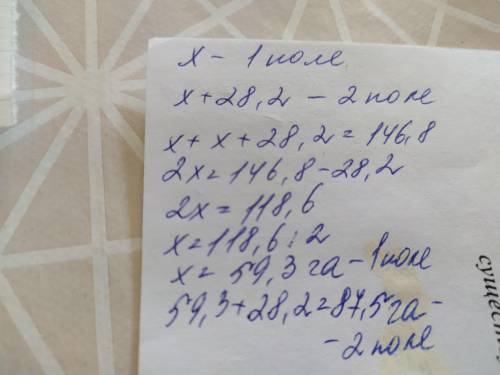 х - 1 поле
х + 28,2 - 2 поле
х + х + 28,2 = 146,8
2х = 146,8 - 28,2
2х = 118,6
х = 118,6 : 2
х = 59,3 га - 1 поле
59,3 + 28,2 = 87,5 га -
- 2 поле